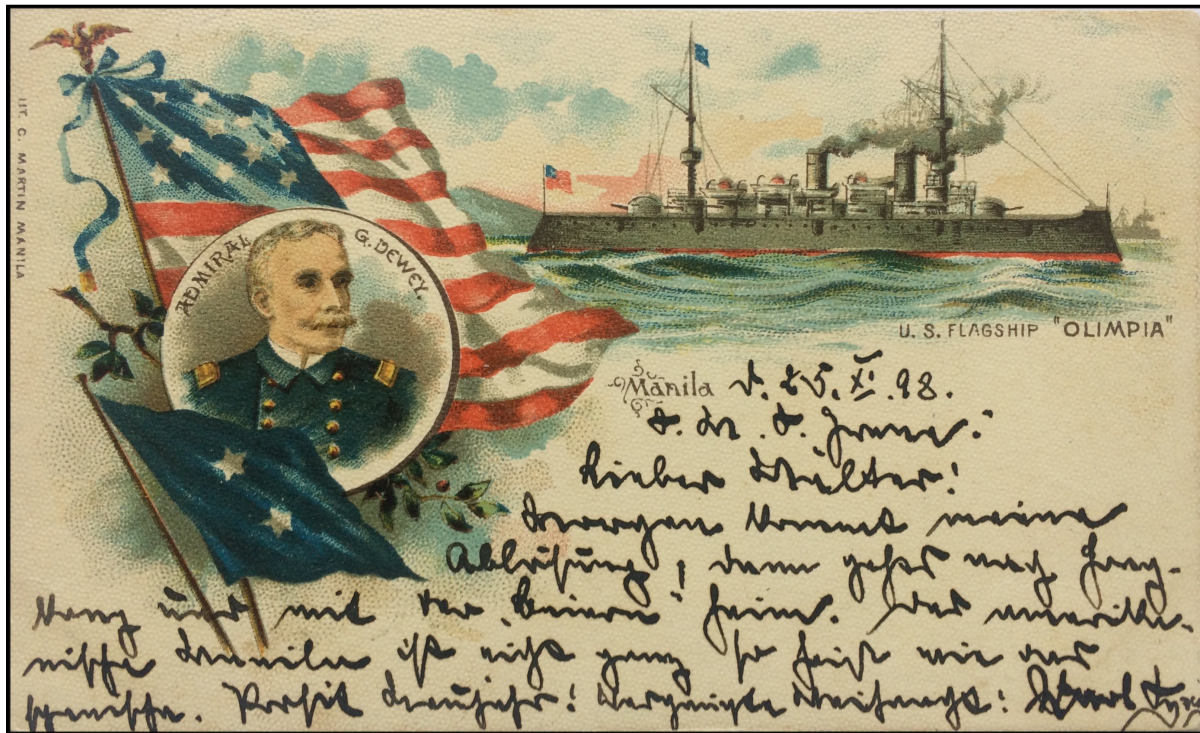 LIT. C. MARTIN MANILA
ADMIRAL G. DEWEY.
U. S. FLAGSHIP "OLIMPIA"
Manila d. 25. XI. 98.
S. M. S. Irene."
Lieber Walter!
Morgen kommt meine
Ablösung, dann gehts nach Hong-
kong und mit der „Baiern" heim. Das amerika-
nische Manila ist nicht ganz so heiß wie das
spanische. Prosit Neujahr! Vergnügte Weihnacht!